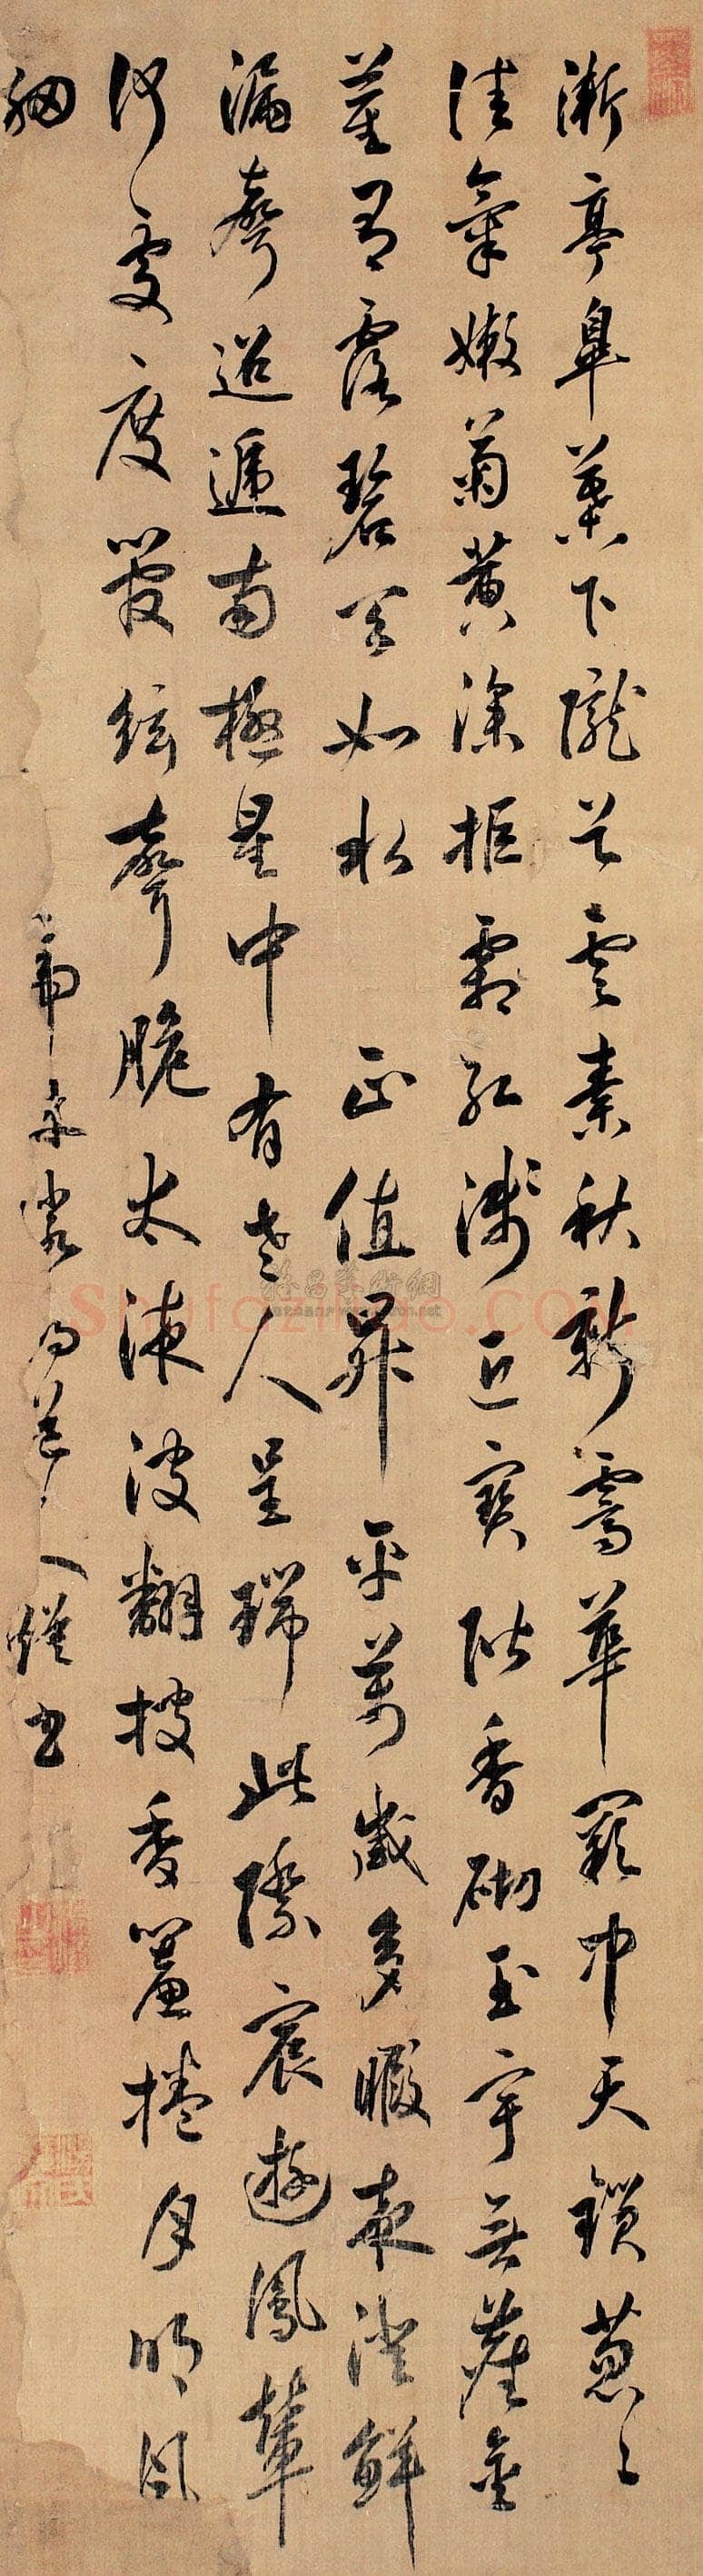 漸亭皋葉下隴首雲素秋新霽華闕中天鎖蔥〻
佳氣嫩菊黃深拒霜紅淺近寶階香砌玉宇無塵金
莖有露碧天如水 正值昇平萬歲多暇夜澄鮮
漏聲迢遞南極星中有老人呈瑞此際宸遊鳳輦
何處度管絃聲脆太液波翻披香簾捲月明風
細